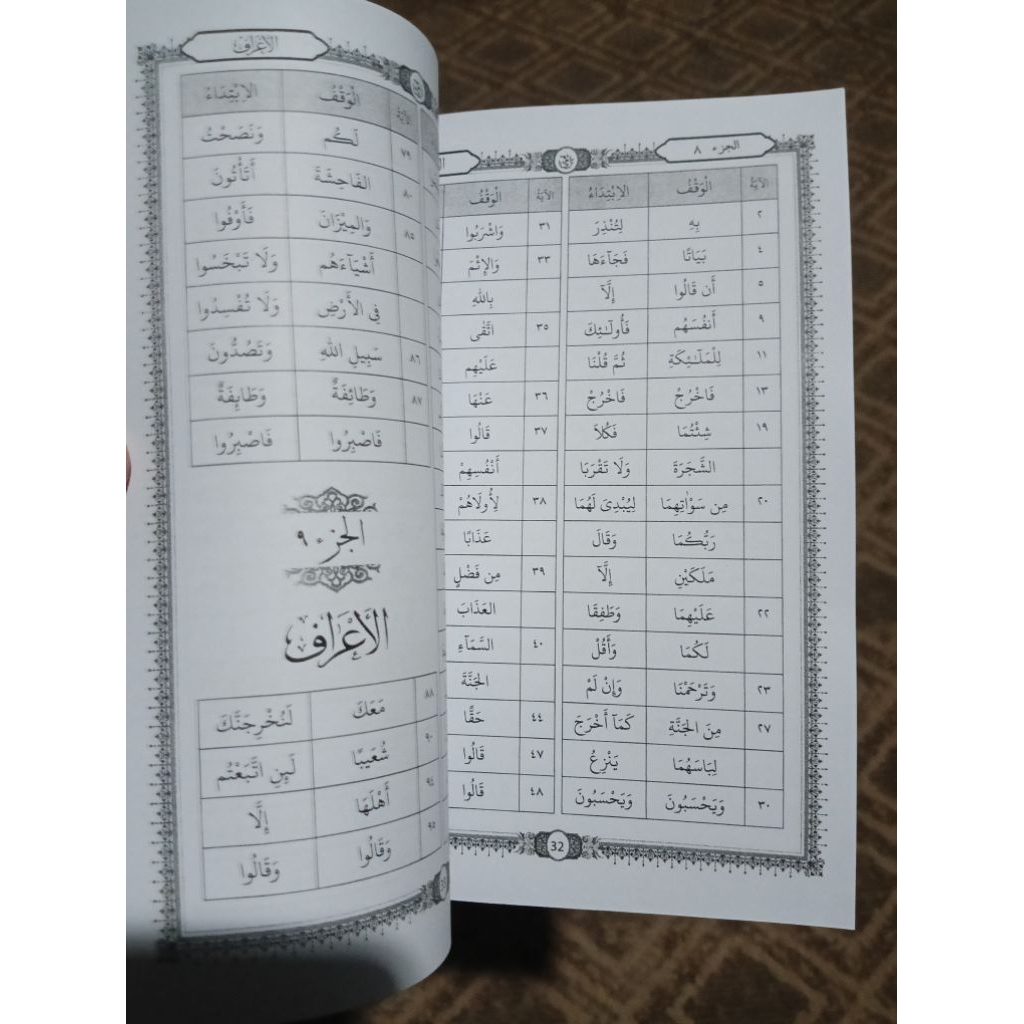 الجزء ٨
الآيَةُ الْوَقْفُ الِابْتِدَاءُ
٢ بِهِ لِتُنْذِرَ
٤ بَيَاتًا فَجَآءَهَا
٥ أَن قَالُوا إِلَّآ
٩ أَنفُسَهُم فَأُولَٰئِكَ
١١ لِلْمَلَٰٓئِكَةِ ثُمَّ قُلْنَا
١٣ فَاخْرُجْ فَاخْرُجْ
١٩ شِئْتُمَا فَكُلَا
الشَّجَرَةَ وَلَا تَقْرَبَا
٢٠ مِن سَوْآتِهِمَا لِيُبْدِىَ لَهُمَا
رَبُّكُمَا وَقَالَ
مَلَكَيْنِ إِلَّآ
٢٢ عَلَيْهِمَا وَطَفِقَا
لَكُمَا وَأَقُلْ
٢٣ وَتَرْحَمْنَا وَإِنْ لَمْ
٢٧ مِنَ الجَنَّةِ كَمَآ أَخْرَجَ
لِبَاسَهُمَا يَنْزِعُ
٣٠ وَيَحْسَبُونَ وَيَحْسَبُونَ
الآيَةُ الْوَقْفُ
٣١ وَاشْرَبُوا
٣٣ وَالإِثْمَ
بِاللهِ
٣٥ اتَّقَى
عَلَيْهِم
٣٦ عَنْهَا
٣٧ قَالُوا
أَنْفُسِهِمْ
٣٨ لِأُولَاهُمْ
عَذَابًا
٣٩ مِن فَضْلٍ
العَذَابَ
٤٠ السَّمَآءِ
الجَنَّةَ
٤٤ حَقًّا
٤٧ قَالُوا
٤٨ قَالُوا
32
الأَعْرَاف
الآيَةُ الْوَقْفُ الِابْتِدَاءُ
٧٩ لَكُم وَنَصَحْتُ
٨٠ الفَاحِشَةَ أَتَأْتُونَ
٨٥ وَالمِيْزَانَ فَأَوْفُوا
أَشْيَآءَهُم وَلَا تَبْخَسُوا
فِي الأَرْضِ وَلَا تُفْسِدُوا
٨٦ سَبِيلِ اللهِ وَتَصُدُّونَ
٨٧ وَطَائِفَةٌ وَطَابِفَةٌ
فَاصْبِرُوا فَاصْبِرُوا
الجزء ٩
الأَعْرَاف
٨٨ مَعَكَ لَنُخْرِجَنَّكَ
٩٠ شُعَيبًا لَبِنِ اتَّبَعْتُم
٩٤ أَهْلَهَا إِلَّا
٩٥ وَقَالُوا وَقَالُوا